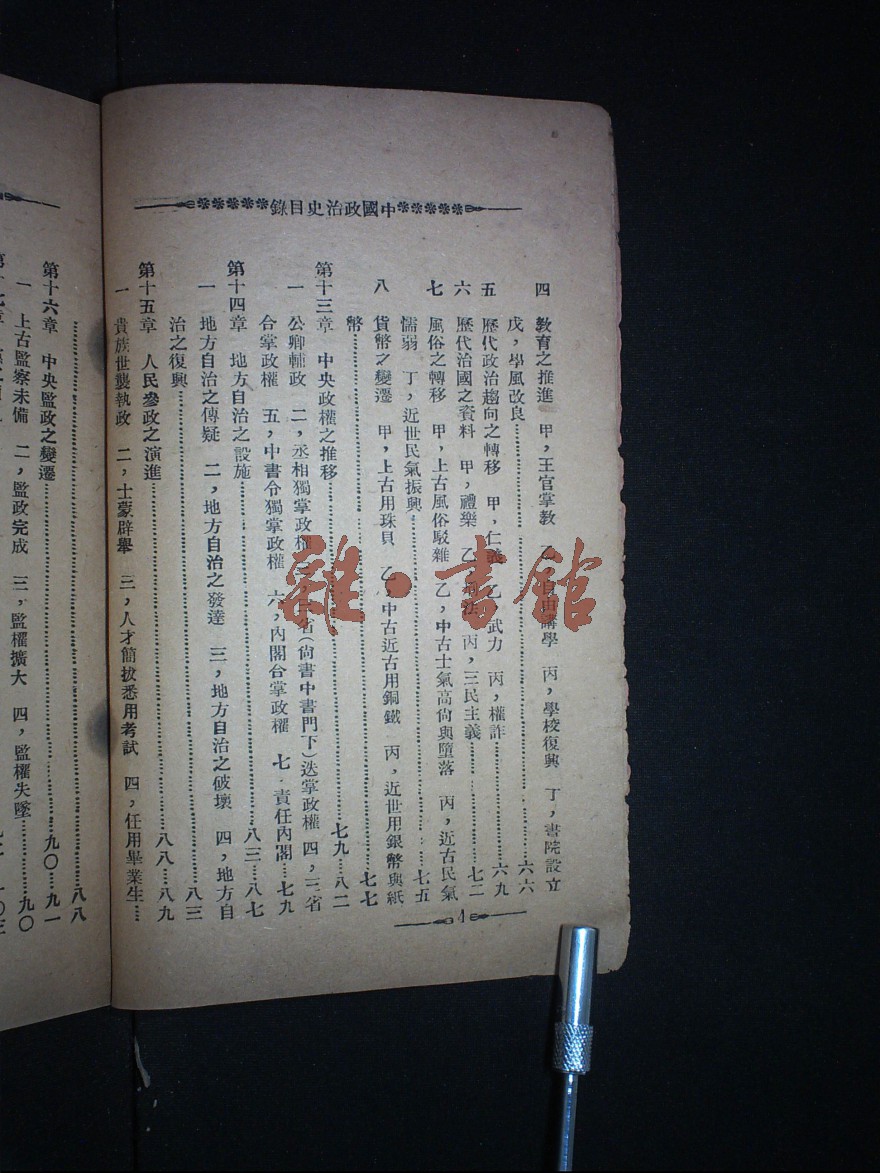 中國政治史目錄
四 教育之推進 甲，王官掌教 乙，自由講學 丙，學校復興 丁，書院設立
戊，學風改良……六六
五 歷代政治趨向之轉移 甲，仁義 乙，武力 丙，權詐……六九
六 歷代治國之資料 甲，禮樂 乙，刑法 丙，三民主義……七二
七 風俗之轉移 甲，上古風俗駁雜 乙，中古士氣高尙與墮落 丙，近古民氣
懦弱 丁，近世民氣振興……七五
八 貨幣之變遷 甲，上古用珠貝 乙，中古近古用銅鐵 丙，近世用銀幣與紙
幣……七七
第十三章 中央政權之推移……七九—八二
一 公卿輔政 二，丞相獨掌政權 三，三省（尙書中書門下）迭掌政權 四，三省
合掌政權 五，中書令獨掌政權 六，內閣合掌政權 七．責任內閣……七九
第十四章 地方自治之設施……八三—八七
一 地方自治之傳疑 二，地方自治之發達 三，地方自治之破壞 四，地方自
治之復興……八三
第十五章 人民參政之演進……八八—八九
一 貴族世襲執政 二，士蒙辟舉 三，人才簡拔悉用考試 四，任用畢業生……
……八八
第十六章 中央監政之變遷……九〇—九一
一 上古監察未備 二，監政完成 三，監權擴大 四，監權失墜……九〇
4
雜·書館